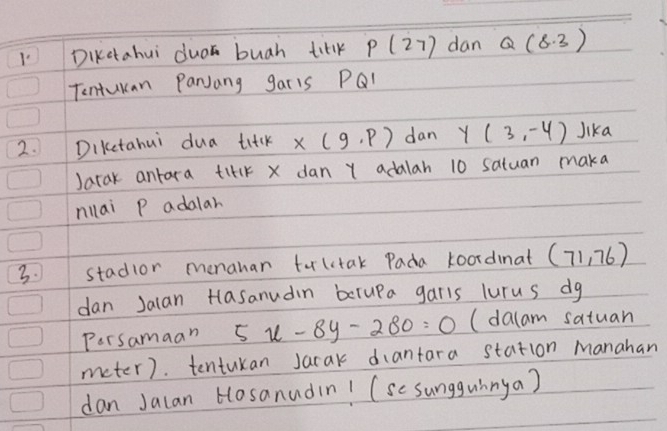 1. Diketahui duah buah titik P (27) dan Q (8.3)
Tentukan Panjang garis PQ!
2. Diketahui dua titik X (9.P) dan Y (3,-4) Jika
Jarak antara titik X dan Y adalah 10 satuan maka
nilai P adalah
3. Stadion menahan terletak Pada koordinat (71,76)
dan Jalan Hasanudin berupa garis lurus dg
Persamaan 5x - 8y - 280 = 0 (dalam satuan
meter). tentukan Jarak diantara station Manahan
dan Jalan Hasanudin! (sesungguhnya)